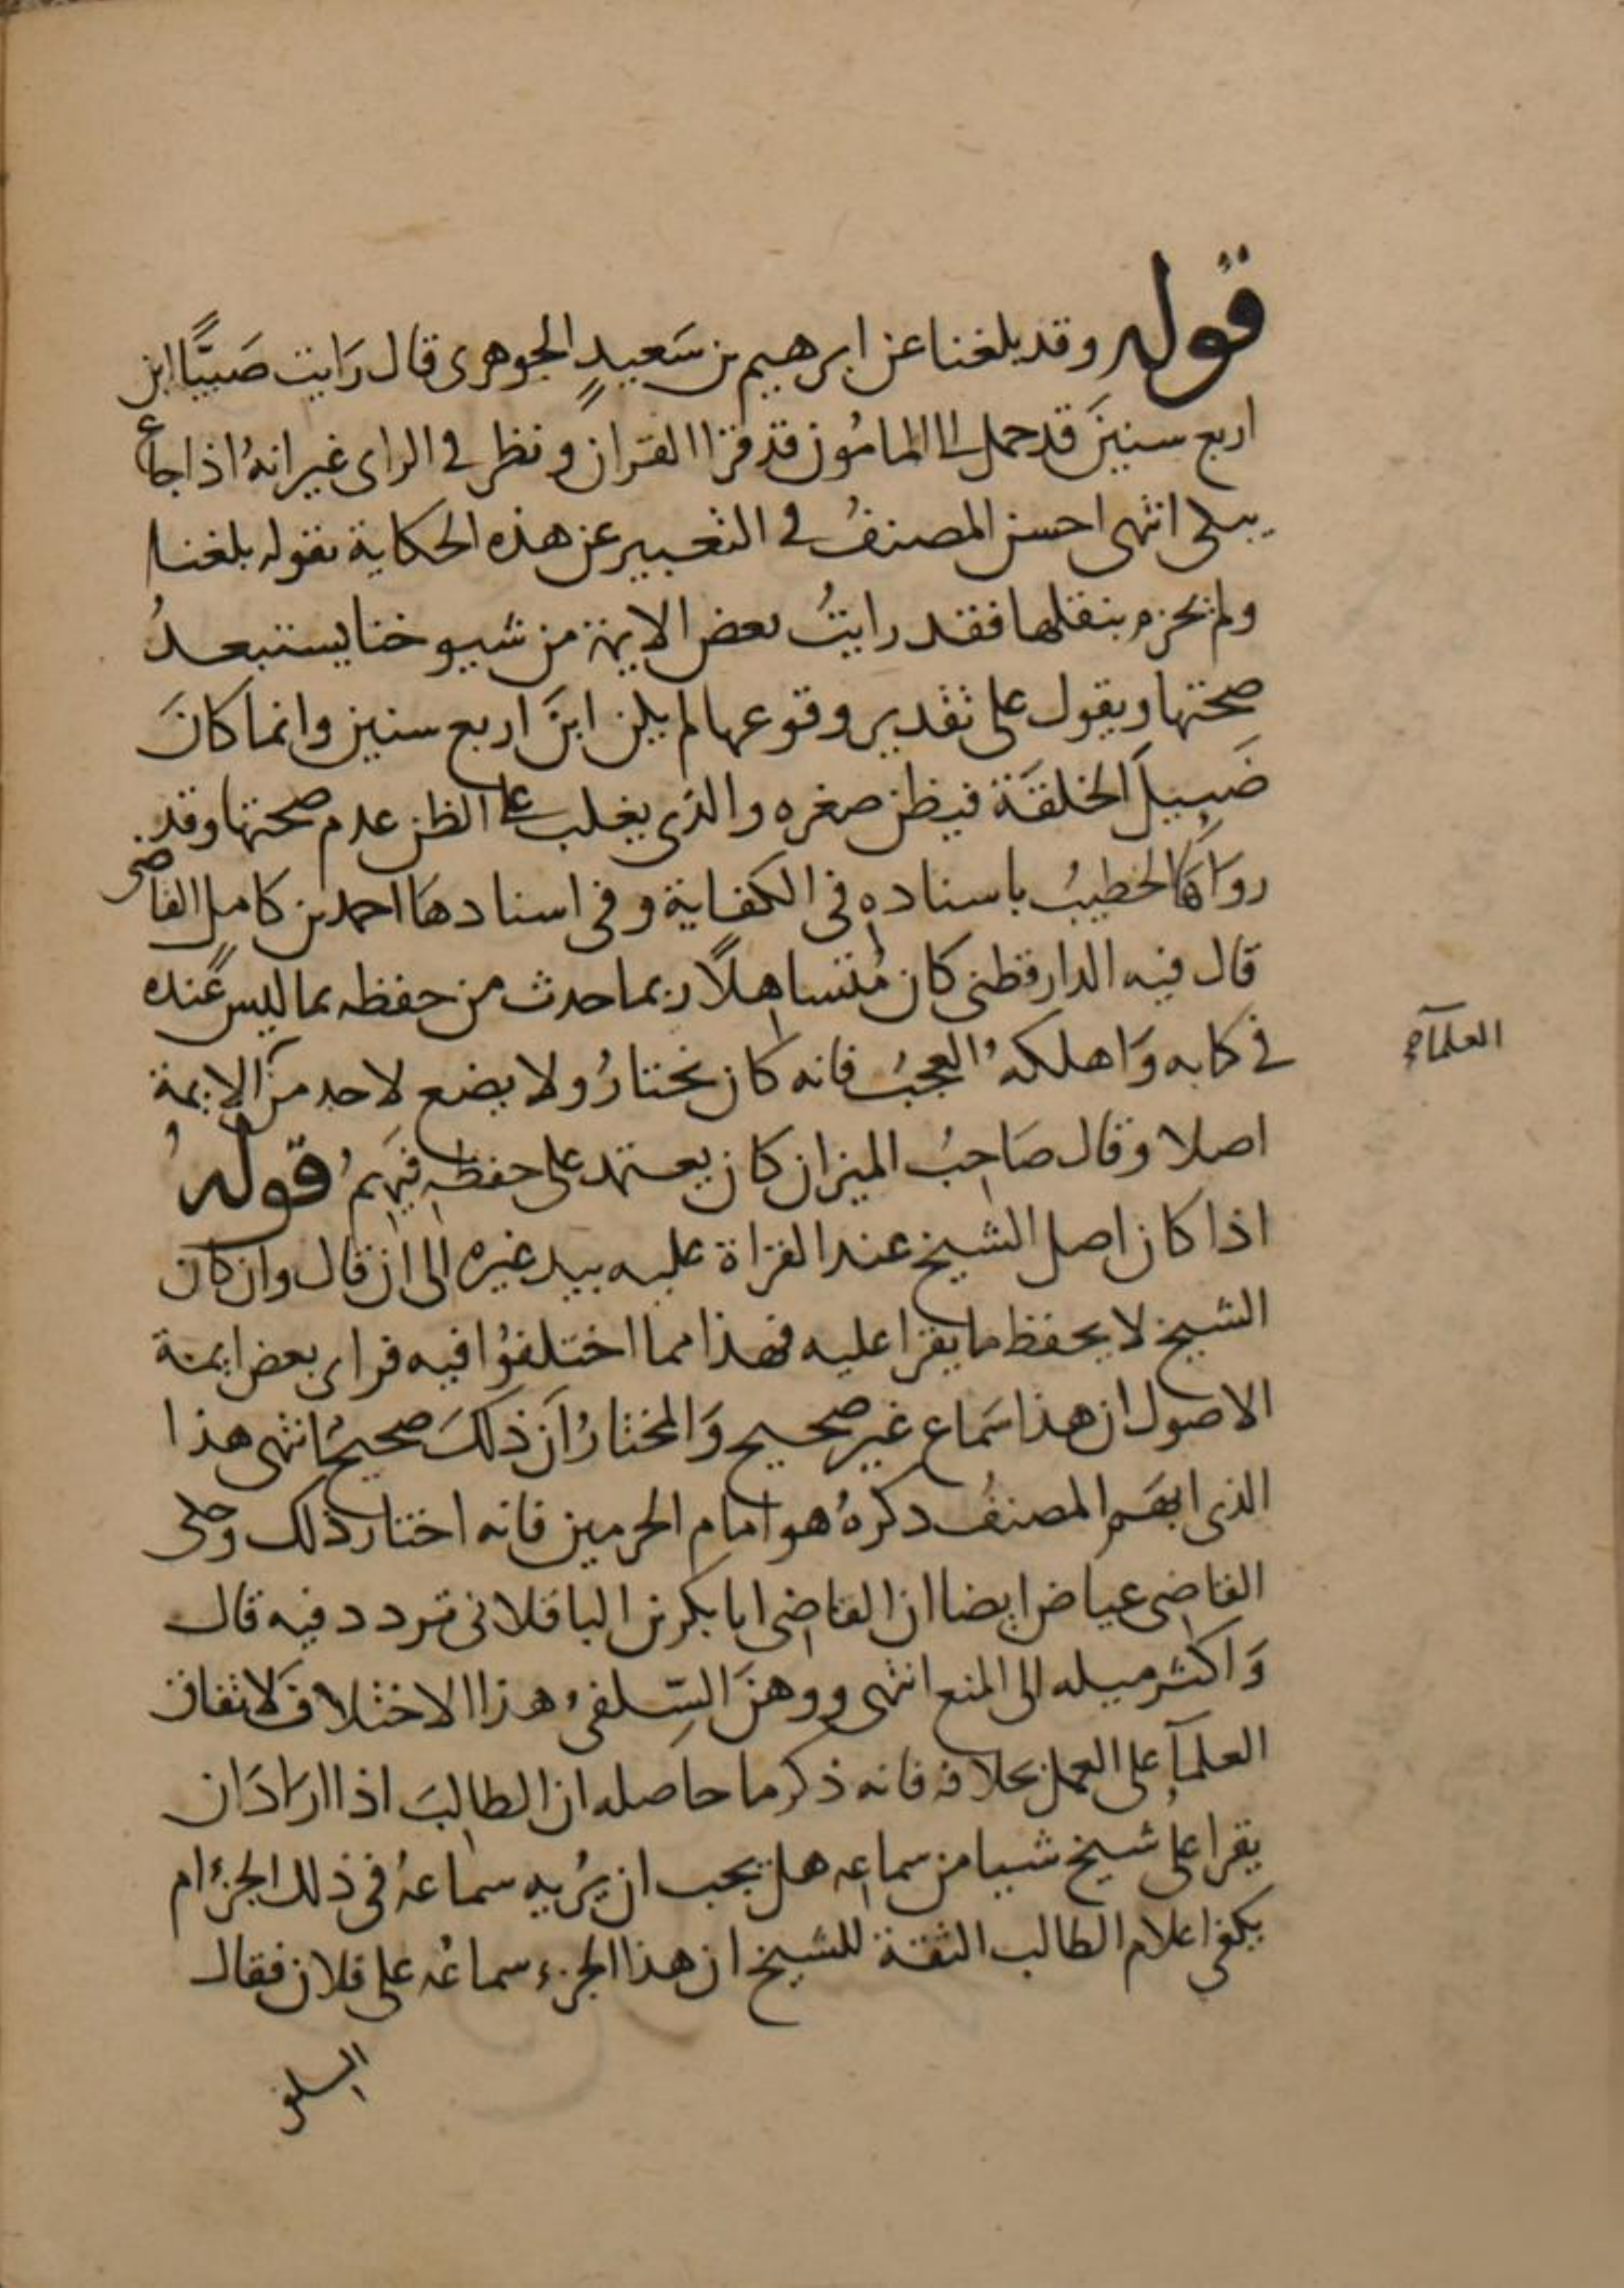 قوله وقد بلغنا عن ابرهيم بن سَعيدٍ الجوهرى قال رَايت صَبيًّا ابن
اربع سنينَ قد حمل الى المامُون قد قرا القران و نظر فى الراى غير انهُ اذا جاع
يبكى انتهى احسن المصنفُ فى التعبير عن هذه الحكاية بقوله بلغنا
ولم يجزم بنقلها فقد رايتُ بعض الايمة من شيوخنا يستبعدُ
صحتها ويقول على تقدير وقوعها لم يكن ابنَ اربع سنين وانما كانَ
ضَييلَ الخلقَة فيظن صغره والذى يغلب على الظن عدم صحتها وقد
روَاهَا الخطيبُ باسناده فى الكفاية وفى اسنادهَا احمد بن كامل القاضى
قال فيه الدارقطنى كان مُتساهلًا ربما حدث من حفظه بما ليس عنده
فى كتابه وَاهلكهُ العجبُ فانه كان يختارُ ولا يضع لاحد منَ الايمة
العلماء
اصلا وقال صَاحبُ الميزان كان يعتمد على حفظه فيَهِمُ قولهُ
اذا كان اصل الشيخ عند القراة عليه بيد غيره الى ان قال وان كان
الشيخ لا يحفظ ما يقرا عليه فهذا مما اختلفوُا فيه فراى بعض ايمة
الاصول ان هذا سَماع غير صحيح وَالمختارُ انَ ذلكَ صحيحُ انتهى هذا
الذى ابهَم المصنفُ دكرهُ هو امام الحرمين فانه اختار ذلك وحكى
القاضى عياض ايضا ان القاضى ابا بكر بن الباقلانى تردد فيه قال
وَاكثر ميله الى المنع انتهى ووهنَ السِّلفىُ هذا الاختلافَ لاتفاق
العلمآءِ على العمل بخلافه فانه ذكر ما حاصله ان الطالبَ اذا ارَادَ ان
يقرا على شيخ شيا من سماعه هل يجب ان يُريه سماعهُ فى ذلك الجزءُ ام
يكفى اعلام الطالب الثقة للشيخ ان هذا الجزء سماعُه على فلان فقال
السلفى